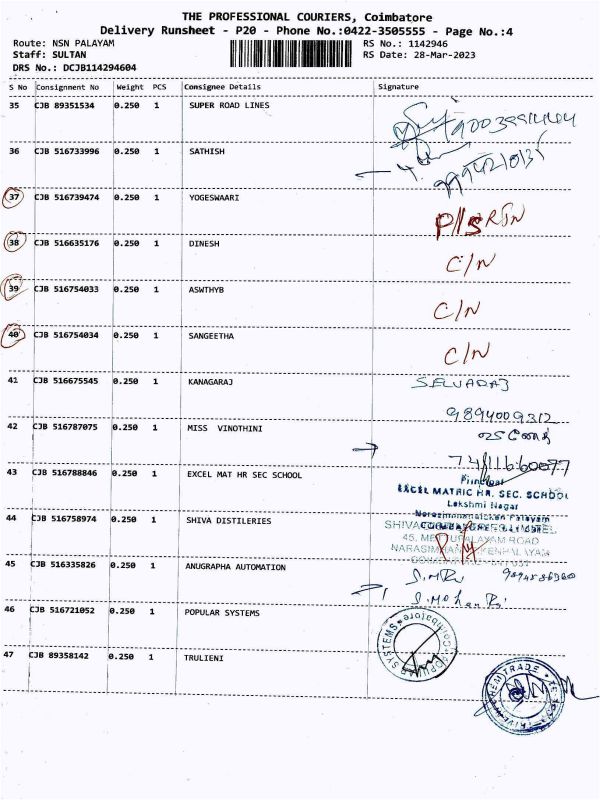 THE PROFESSIONAL COURIERS, Coimbatore
Delivery Runsheet - P20 - Phone No.:0422-3505555 - Page No.:4
Route: NSN PALAYAM RS No.: 1142946
Staff: SULTAN RS Date: 28-Mar-2023
DRS No.: DCJB114294604
S No Consignment No Weight PCS Consignee Details Signature
35 CJB 89351534 0.250 1 SUPER ROAD LINES
36 CJB 516733996 0.250 1 SATHISH
37 CJB 516739474 0.250 1 YOGESWAARI
38 CJB 516635176 0.250 1 DINESH
C/N
39 CJB 516754033 0.250 1 ASWTHYB
C/N
40 CJB 516754034 0.250 1 SANGEETHA
C/N
41 CJB 516675545 0.250 1 KANAGARAJ SELVARAJ
9894009312
42 CJB 516787075 0.250 1 MISS VINOTHINI
43 CJB 516788846 0.250 1 EXCEL MAT HR SEC SCHOOL
Principal
EXCEL MATRIC HR. SEC. SCHOOL
Lakshmi Nagar
44 CJB 516758974 0.250 1 SHIVA DISTILERIES
45 CJB 516335826 0.250 1 ANUGRAPHA AUTOMATION
46 CJB 516721052 0.250 1 POPULAR SYSTEMS
POPULAR SYSTEMS Coimbatore
47 CJB 89358142 0.250 1 TRULIENI